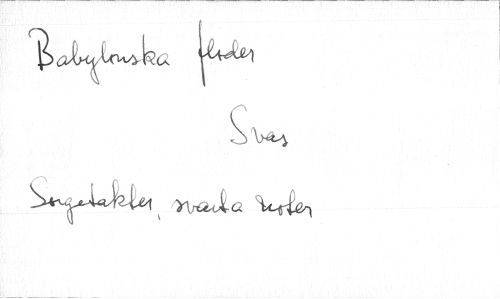 Babylonska floder
Svas
Sorgetakter, svarta noter